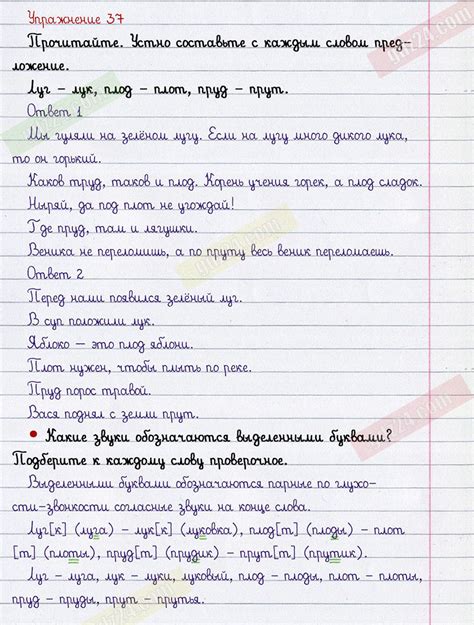 Упражнение 37
Прочитайте. Устно составьте с каждым словом пред-
ложение.
Луг – лук, плод – плот, пруд – прут.
Ответ 1
Мы гуляли на зелёном лугу. Если на лугу много дикого лука,
то он горький.
Каков труд, таков и плод. Корень учения горек, а плод сладок.
Ныряй, да под плот не угождай!
Где пруд, там и лягушки.
Веника не переломишь, а по пруту весь веник переломаешь.
Ответ 2
Перед нами появился зелёный луг.
В суп положили лук.
Яблоко – это плод яблони.
Плот нужен, чтобы плыть по реке.
Пруд порос травой.
Вася поднял с земли прут.
• Какие звуки обозначаются выделенными буквами?
Подберите к каждому слову проверочное.
Выделенными буквами обозначаются парные по глухо-
сти-звонкости согласные звуки на конце слова.
Луг[к] (луга) – лук[к] (луковка), плод[т] (плоды) – плот
[т] (плоты), пруд[т] (прудик) – прут[т] (прутик).
Луг – луга, лук – луки, луковый, плод – плоды, плот – плоты,
пруд – пруды, прут – прутья.